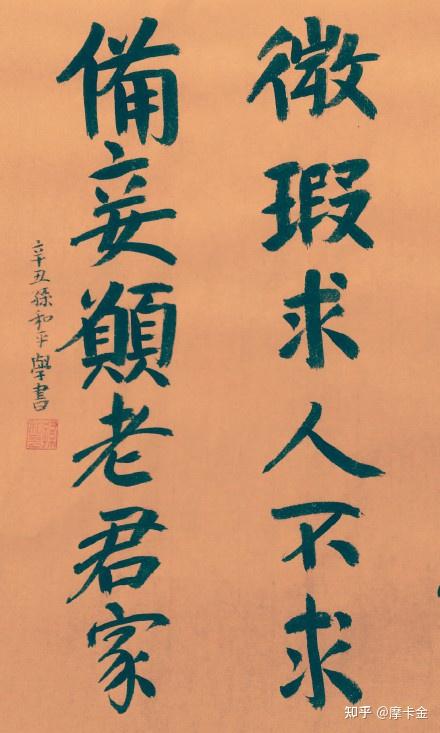 微瑕求人不求
備妾願老君家
辛丑孫和平學書
知乎 @摩卡金